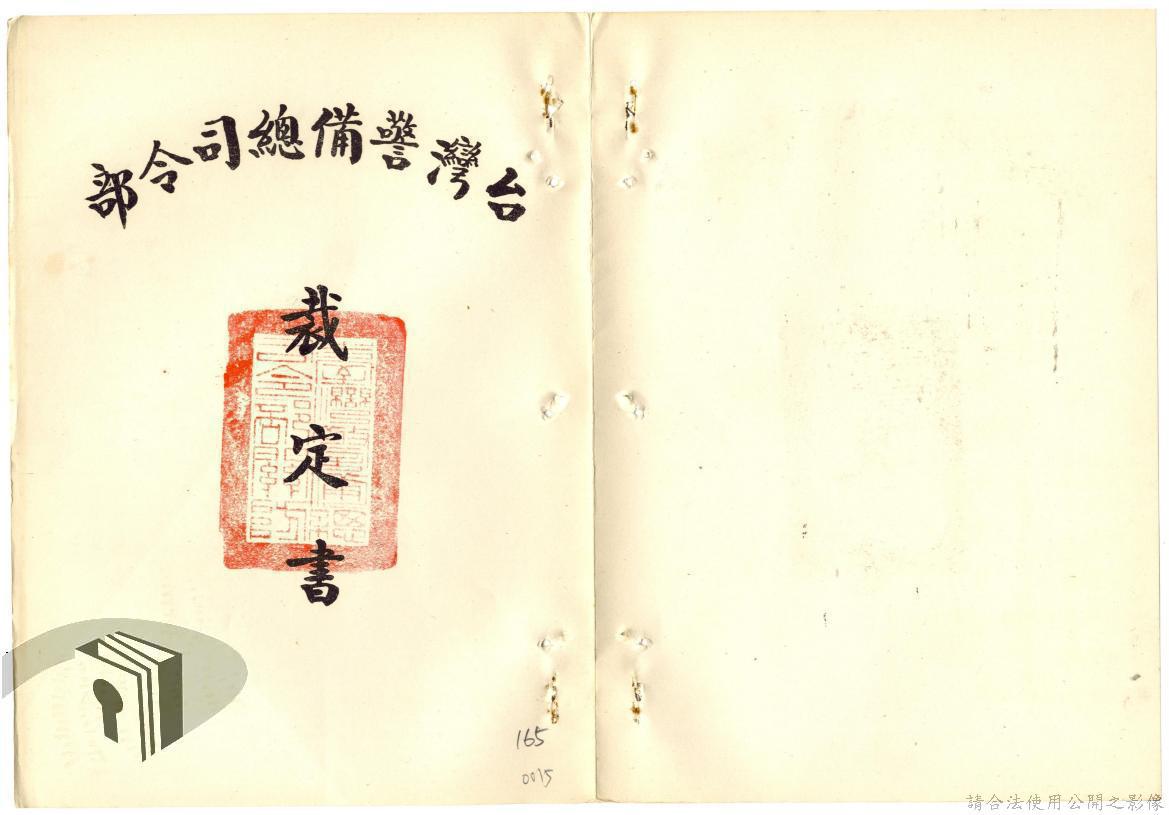 台灣警備總司令部
裁定書
165
0015
請合法使用公開之影像